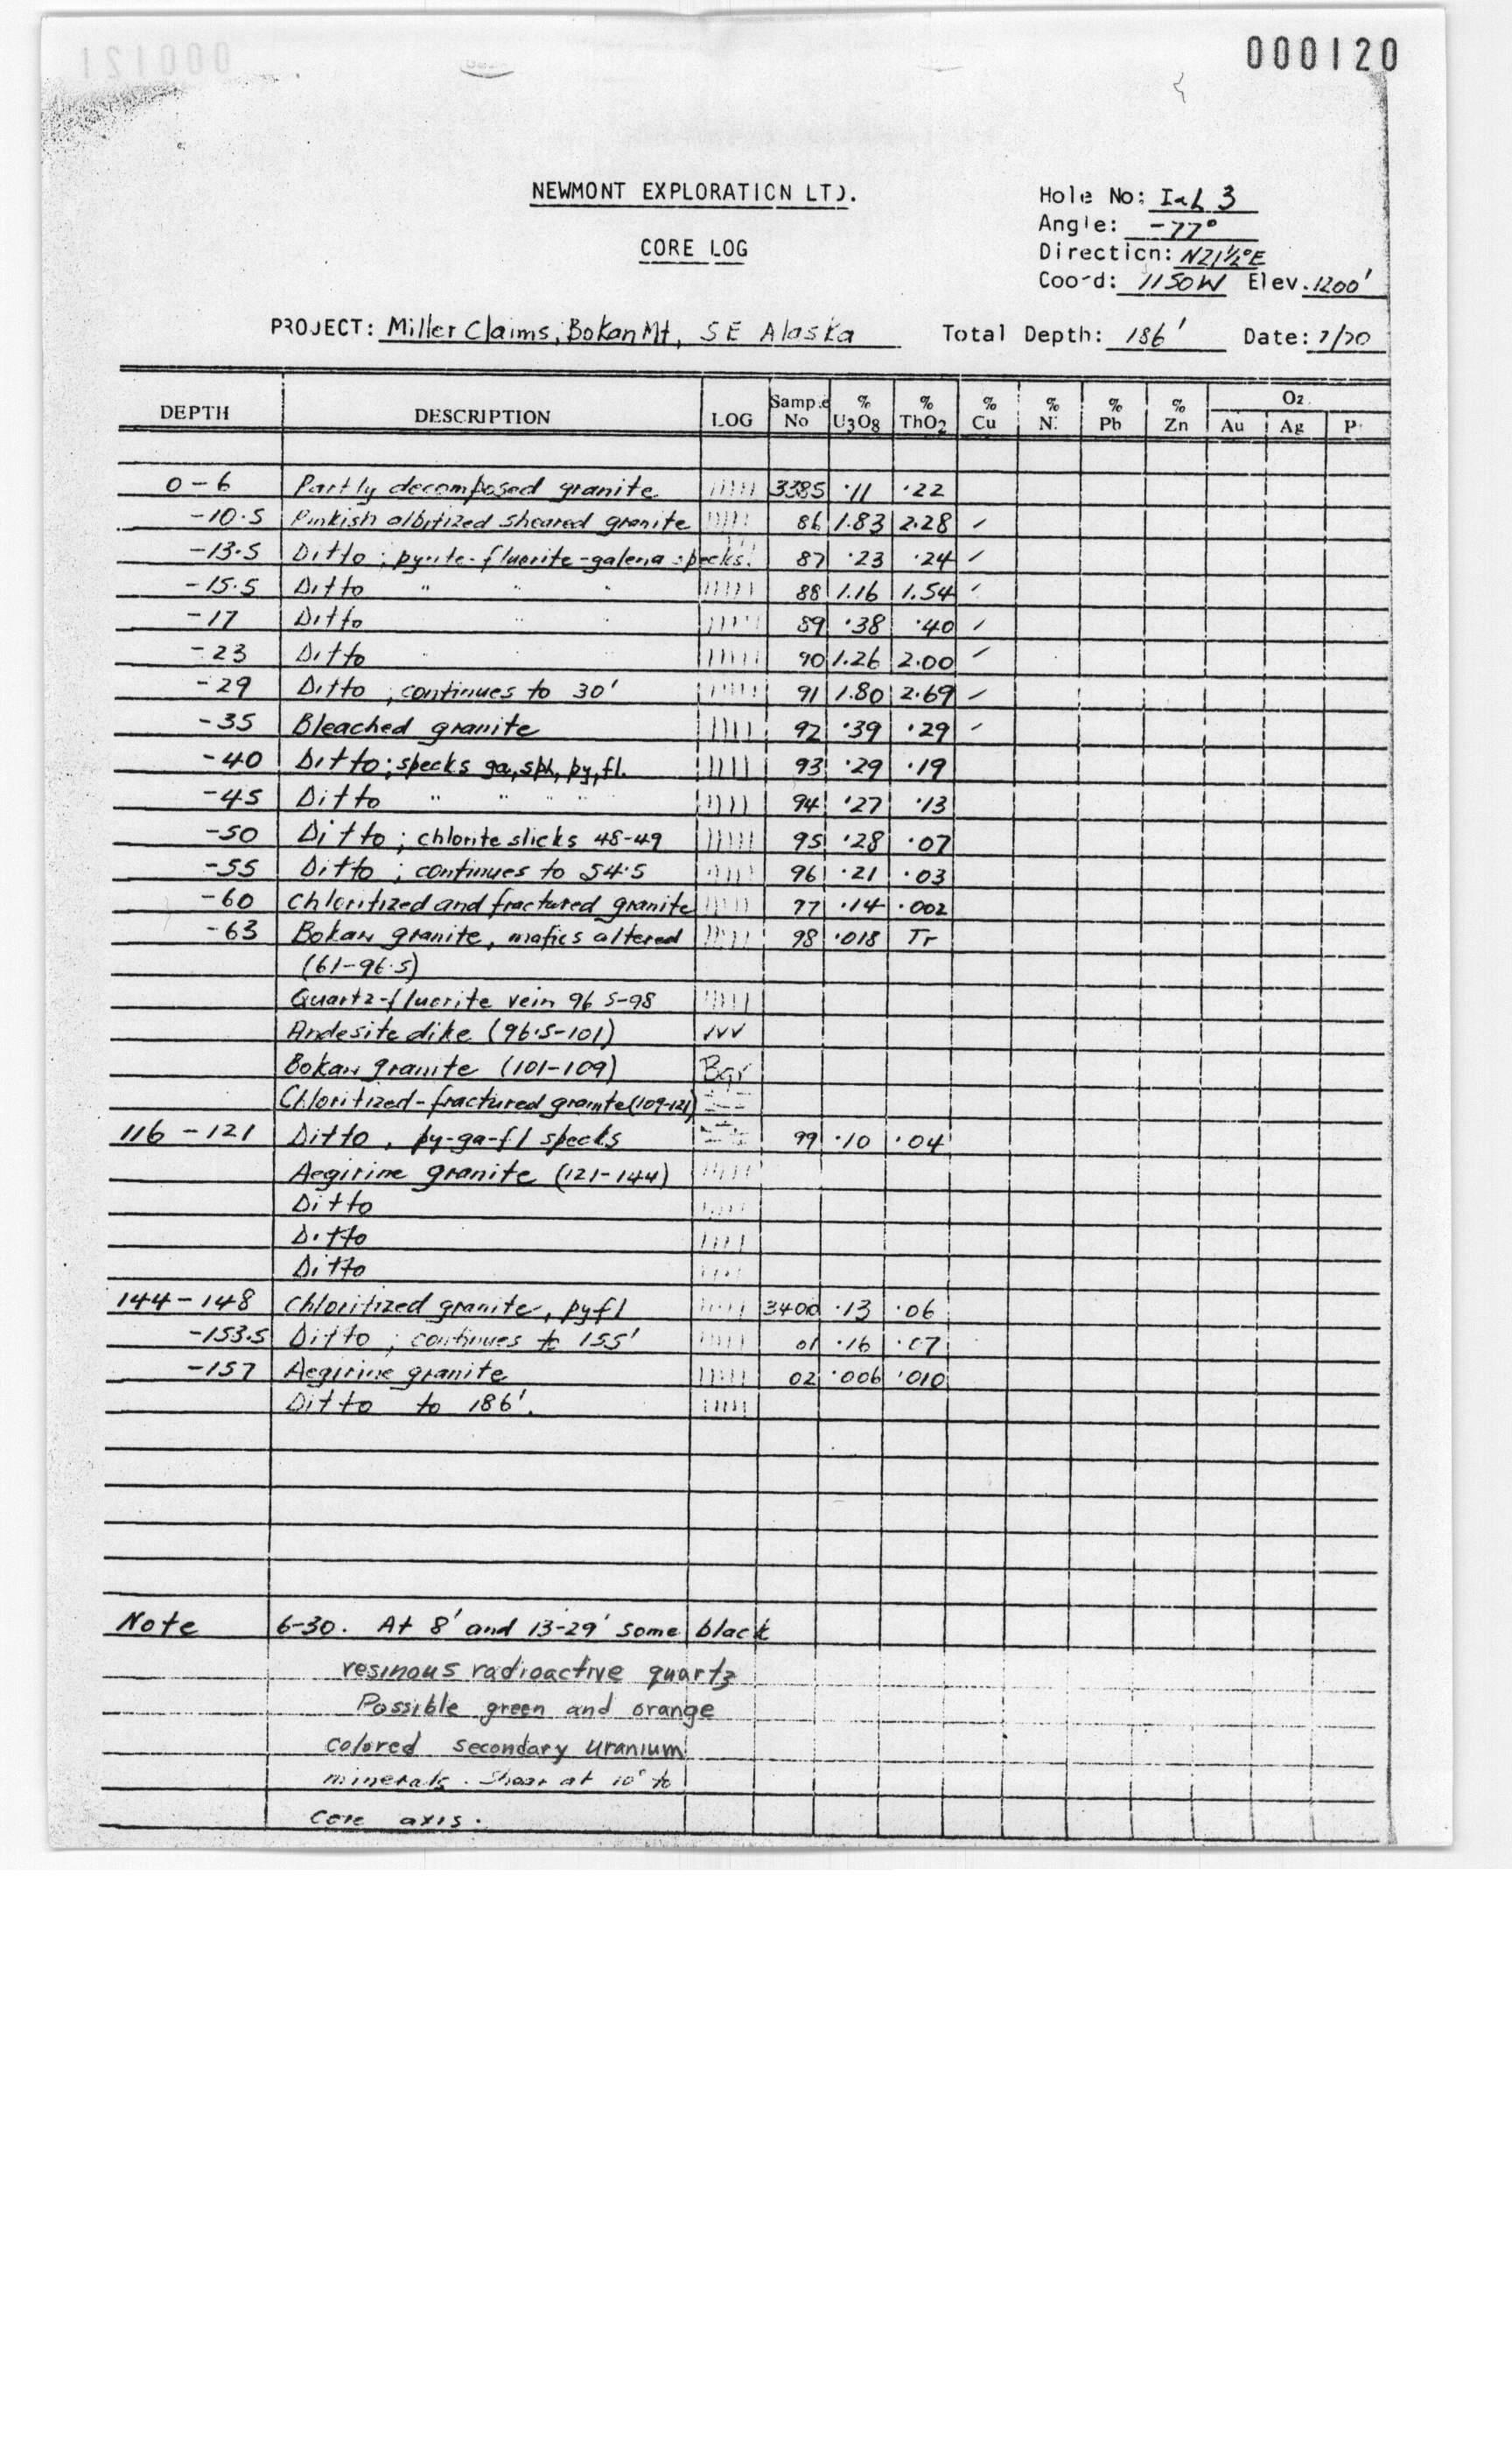 000120
NEWMONT EXPLORATION LTD.
CORE LOG
Hole No: I&L 3
Angle: -77°
Direction: N21½°E
Coord: 1150W Elev. 1200'
PROJECT: Miller Claims, Bokan Mt, SE Alaska Total Depth: 186' Date: 7/70
DEPTH DESCRIPTION LOG Sample No % U3O8 % ThO2 % Cu % Ni % Pb % Zn Oz. Au Ag P
0-6 Partly decomposed granite 3385 .11 .22
-10.5 Pinkish albitized sheared granite 86 1.83 2.28
-13.5 Ditto ; pyrite-fluorite-galena specks. 87 .23 .24
-15.5 Ditto " " " 88 1.16 1.54
-17 Ditto " " 89 .38 .40
-23 Ditto " " 90 1.26 2.00
-29 Ditto ; continues to 30' 91 1.80 2.69
-35 Bleached granite 92 .39 .29
-40 Ditto; specks ga, sph, py, fl. 93 .29 .19
-45 Ditto " " " " 94 .27 .13
-50 Ditto ; chlorite slicks 48-49 95 .28 .07
-55 Ditto ; continues to 54.5 96 .21 .03
-60 Chloritized and fractured granite 97 .14 .002
-63 Bokan granite, mafics altered 98 .018 Tr
(61-96.5)
Quartz-fluorite vein 96.5-98
Andesite dike (96.5-101) VVV
Bokan granite (101-109) Bgr
Chloritized-fractured granite (109-121)
116-121 Ditto, py-ga-fl specks 99 .10 .04
Aegirine granite (121-144)
Ditto
Ditto
Ditto
144-148 Chloritized granite, py fl 3400 .13 .06
-153.5 Ditto ; continues to 155' 01 .16 .07
-157 Aegirine granite 02 .006 .010
Ditto to 186'.
Note 6-30. At 8' and 13-29' some black
resinous radioactive quartz
Possible green and orange
colored secondary uranium
minerals. Shear at 10° to
core axis.